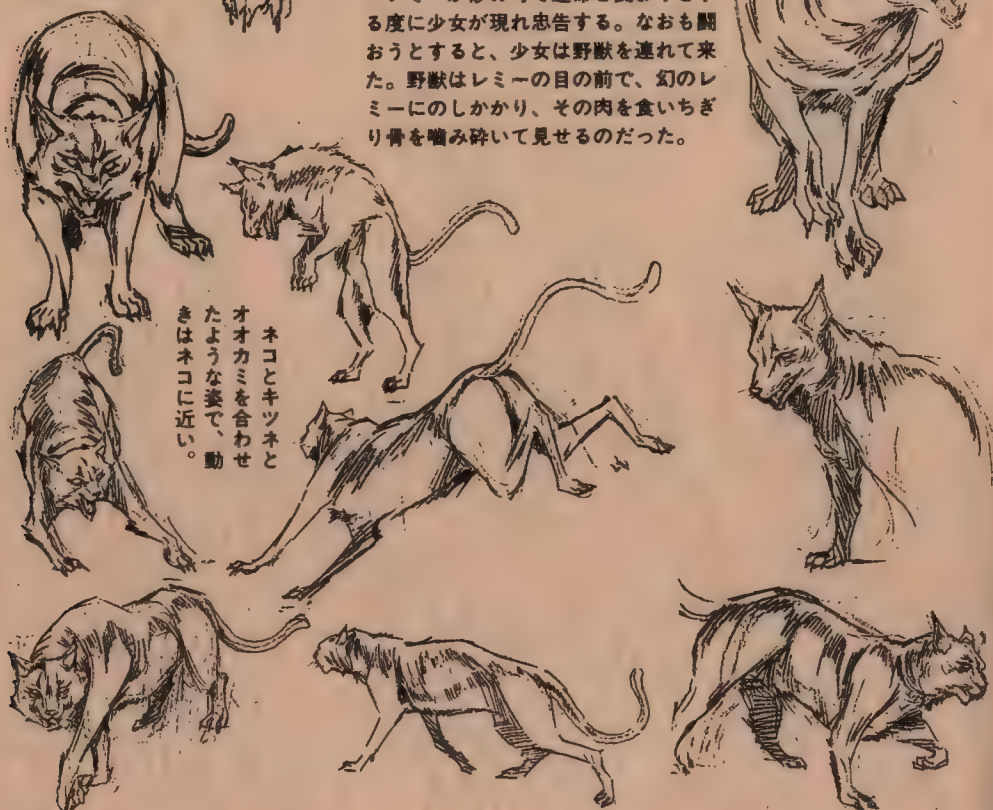 る度に少女が現れ忠告する。なおも闘
おうとすると、少女は野獣を連れて来
た。野獣はレミーの目の前で、幻のレ
ミーにのしかかり、その肉を食いちぎ
り骨を噛み砕いて見せるのだった。
ネコとキツネと
オオカミを合わせ
たような姿で、動
きはネコに近い。